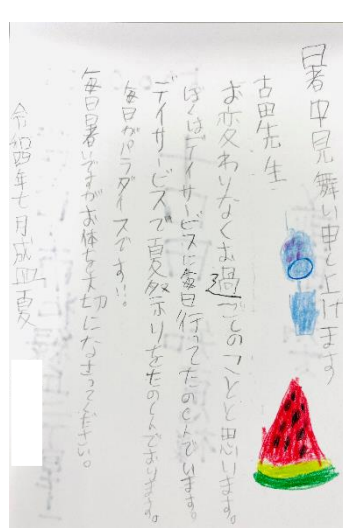 暑中見舞い申し上げます
古田先生
お変わりなくお過ごしのことと思います。
ぼくはデイサービスに毎日行ってたのしんでいます。
デイサービスで夏祭りをたのしんでおります。
毎日がパラダイスです!!
毎日暑いですがお体を大切になさってください。
令和四年七月盛夏